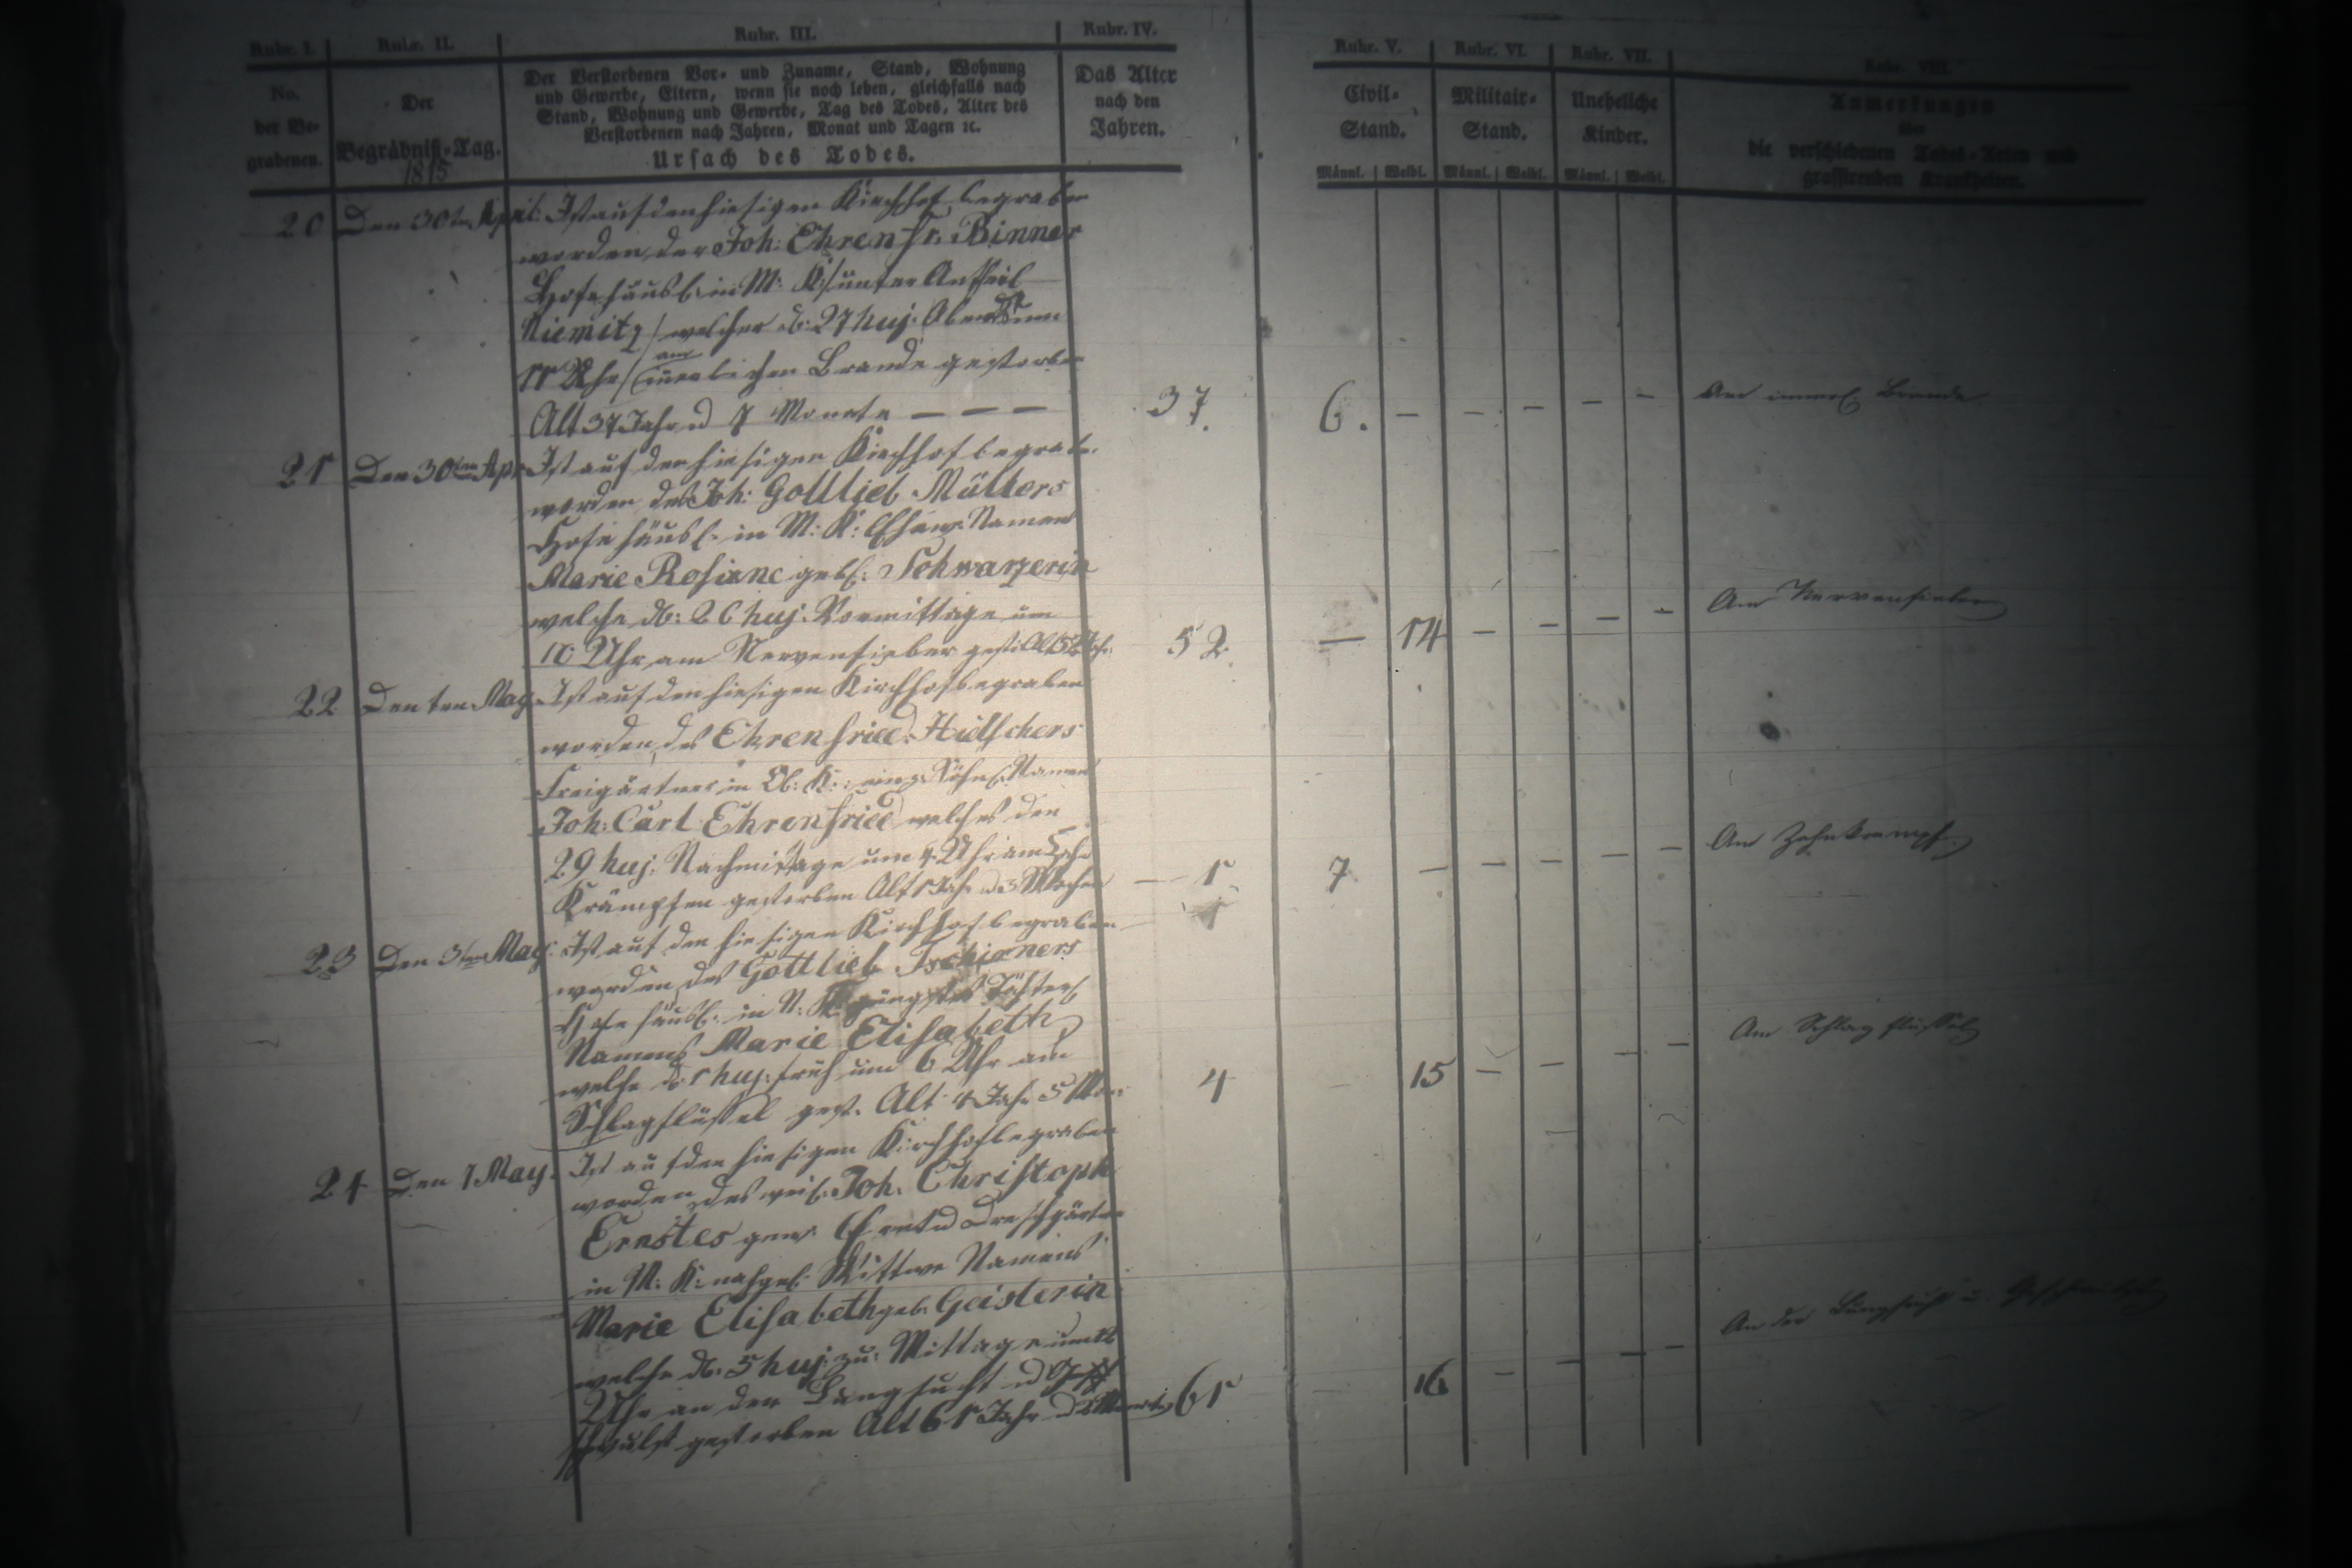 Rubr. I. Rubr. II. Rubr. III. Rubr. IV. Rubr. V. Rubr. VI. Rubr. VII. Rubr. VIII.
No.
der Be-
grabenen.
Der
Begräbniß-Tag.
1815
Der Verstorbenen Vor- und Zuname, Stand, Wohnung
und Gewerbe, Eltern, wenn sie noch leben, gleichfalls nach
Stand, Wohnung und Gewerbe, Tag des Todes, Alter des
Verstorbenen nach Jahren, Monat und Tagen ꝛc.
Ursach des Todes.
Das Alter
nach den
Jahren.
Civil-
Stand.
Männl. Weibl.
Militair-
Stand.
Männl. Weibl.
Uneheliche
Kinder.
Männl. Weibl.
Anmerkungen
über
die verschiedenen Todes-Arten und
grassirenden Krankheiten.
20 Den 30ten April: Ist auf den hiesigen Kirchhof begraben
worden der Joh: Ehrenfr. Binner
Hofehäusl. in M: K: /unter Antheil
Niemitz/ welcher d: 27 huj. Abends um
11 Uhr am innerlichen Brande gestorben
Alt 37 Jahr u 7 Monate — — — 37. 6. — — — — — Am innerl. Brande
21 Den 30ten Apr. Ist auf den hiesigen Kirchhof begrab.
worden des Joh: Gottlieb Müllers
Hofehäusl. in M: K: Ehew. Namens
Marie Rosiane geb. Schwarzerin
welche d: 26 huj. Vormittage um
10 Uhr am Nervenfieber gest. Alt 52 Jahr. 52. — 14 — — — — Am Nervenfieber
22 Den ten May. Ist auf den hiesigen Kirchhof begraben
worden des Ehrenfried Hielschers
Freigärtner in Ob: K: einz. Söhnl. Namens
Joh: Carl Ehrenfried welches den
29 huj: Nachmittage um 4 Uhr am Zahn
Krämpfen gestorben Alt 1 Jahr u 3 Wochen — 1 7 — — — — — Am Zahnkrampf.
23 Den 3ten May: Ist auf den hiesigen Kirchhof begraben
worden des Gottlieb Tschirners
Hofehäusl. in N: K: jüngstes Töchterl.
Namens Marie Elisabeth
welche d: 1 huj: früh um 6 Uhr am
Schlagflüssel gest. Alt 4 Jahr 5 Mon: 4 — 15 — — — — Am Schlagflüssel
24 Den 7 May. Ist auf den hiesigen Kirchhof begraben
worden des weil. Joh. Christoph
Ernstes gew. Dreschgärtner
in M: K: nachgel. Wittwe Namens
Marie Elisabeth geb. Geislerin
welche d: 5 huj: zu Mittage um 12
Uhr an der Lungsucht u Ge
schwulst gestorben Alt 61 Jahr u 2 Monate 61 16 — — — — An der Lungsucht u. Geschwulst